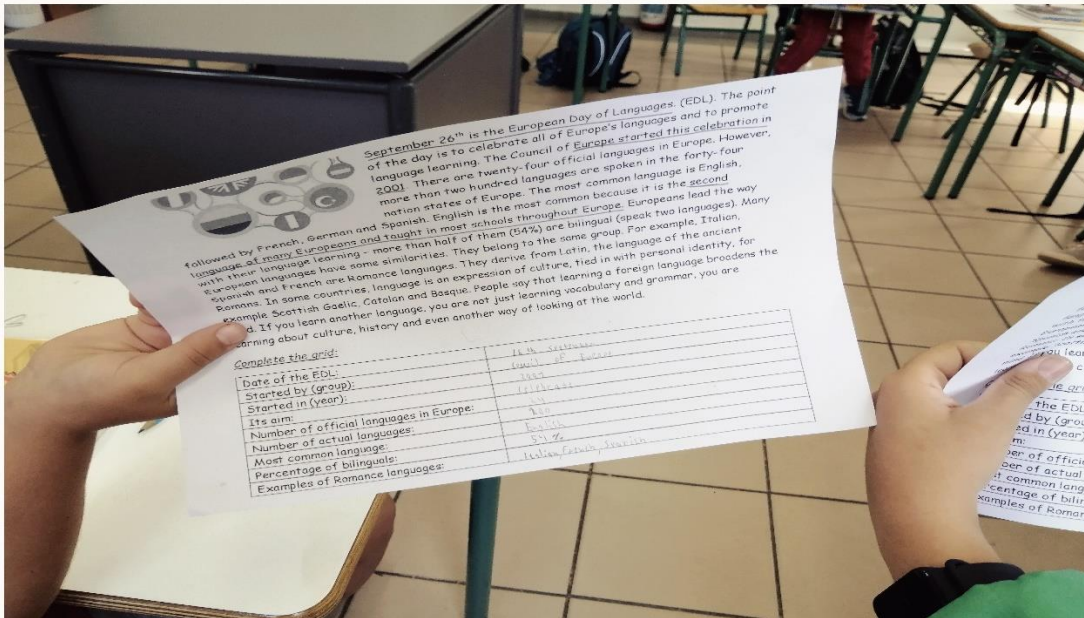 September 26th is the European Day of Languages. (EDL). The point
of the day is to celebrate all of Europe's languages and to promote
language learning. The Council of Europe started this celebration in
2001. There are twenty-four official languages in Europe. However,
more than two hundred languages are spoken in the forty-four
nation states of Europe. The most common language is English,
followed by French, German and Spanish. English is the most common because it is the second
language of many Europeans and taught in most schools throughout Europe. Europeans lead the way
with their language learning - more than half of them (54%) are bilingual (speak two languages). Many
European languages have some similarities. They belong to the same group. For example, Italian,
Spanish and French are Romance languages. They derive from Latin, the language of the ancient
Romans. In some countries, language is an expression of culture, tied in with personal identity, for
example Scottish Gaelic, Catalan and Basque. People say that learning a foreign language broadens the
If you learn another language, you are not just learning vocabulary and grammar, you are
learning about culture, history and even another way of looking at the world.
Complete the grid:
Date of the EDL: September
Started by (group): of
Started in (year):
Its aim:
Number of official languages in Europe:
Number of actual languages: 200
Most common language: English
Percentage of bilinguals: 54 %
Examples of Romance languages: Spanish
you lear
the EDL
d by (grou
ed in (year)
m:
ber of offici
ber of actual
t common lang
centage of bilin
xamples of Roman